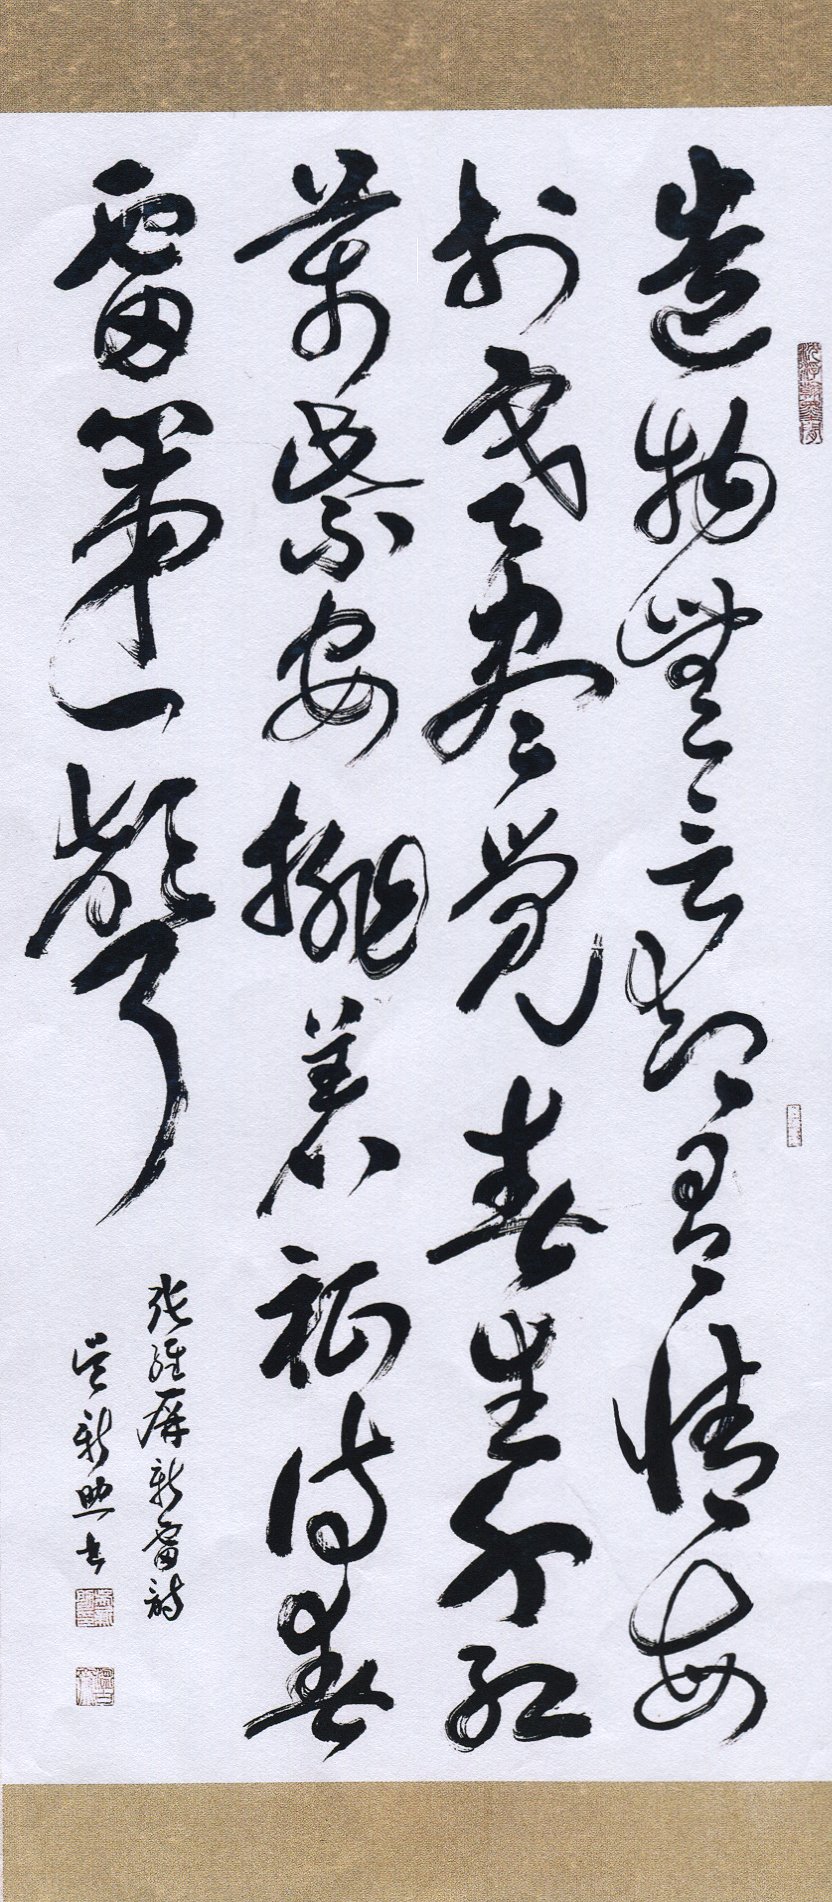 造物無言却有情每
於寒盡覺春生千紅
萬紫安排着祇待春
雷第一聲
張維屏新雷詩
吴新照書